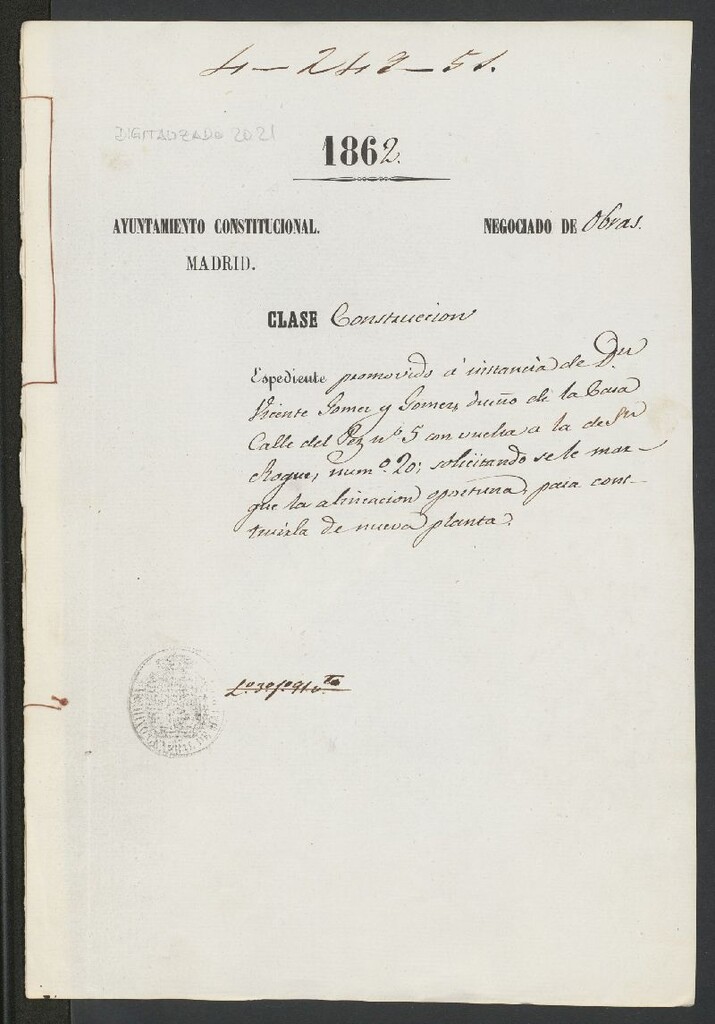 4-249-51.
DIGITALIZADO 2021
1862.
AYUNTAMIENTO CONSTITUCIONAL.
MADRID.
NEGOCIADO DE Obras.
CLASE Construccion
Espediente promovido á instancia de Dn.
Vicente Gomez y Gomez, dueño de la Casa
Calle del Pez nº 5 con vuelta a la de Sn
Roque, num.º 20; solicitando se le mar-
que la alineacion oportuna, para cons-
truirla de nueva planta.